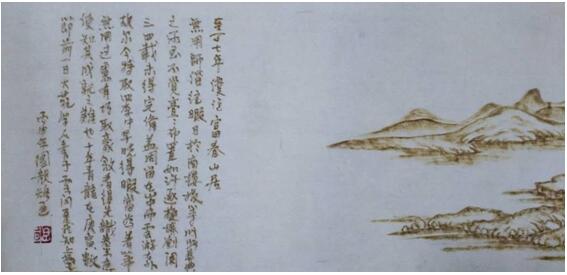 至正七年僕歸富春山居
無用師偕往暇日於南樓援筆寫成此卷
之所至不覺亹亹布置如許逐旋填劄閱
三四載未得完備蓋因留在山中而雲遊在
故爾今特取回行李中早晚得暇當為著筆
無用過慮有巧取豪敚者俾先識卷末庶
使知其成就之難也十年青龍在庚寅歜
節前一日大癡學人書于雲間夏氏知止堂
丙申年